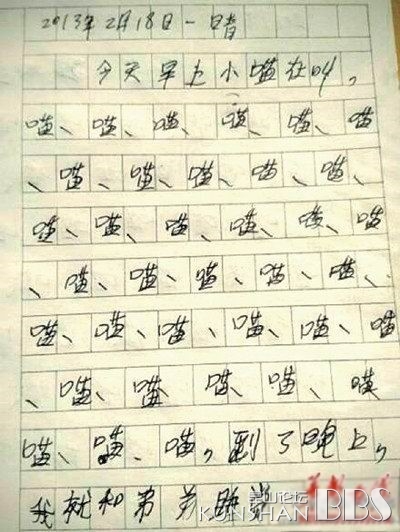 2013年2月18日一晴
今天早上小喵在叫,
喵、喵、喵、喵、喵、喵
、喵、喵、喵、喵、喵、
喵、喵、喵、喵、喵、喵
、喵、喵、喵、喵、喵、
喵、喵、喵、喵、喵、喵
、喵、喵、喵、喵、喵
喵、喵、喵,到了晚上,
我就和弟弟睡觉
昆山论坛
KUNSHAN BBS